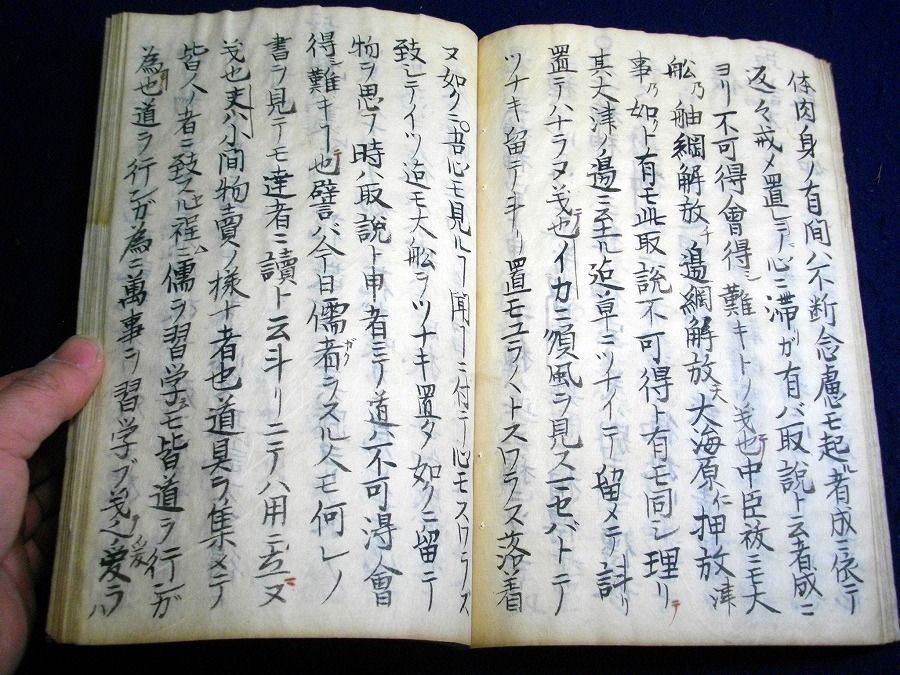 体肉身ノ有間ハ不断念慮モ起ル者成ニ依テ
返々戒メ置シテハ心ニ滞リガ有バ取説ト云者成ニ
ヨリ不可得會得シ難キトノ義也中臣祓ニモ大
舩乃舳綱解放チ邉綱解放天大海原仁押放津
事乃如クト有モ此取説不可得ト有モ同シ理リ
其大津ノ邉ニ至ル迠草ニツナイテ留メテ計リ
置テハナラヌ義也イカニ順風ヲ見スーセバトテ
ツナキ留テ斗リ置モユラヘトスワラス落着
ヌ如クニ吾心モ見ルヿ聞ヿニ付テー心モスワラズ
致シテイツ迠モ大舩ヲツナキ置タ如クニ留テ
物ヲ思フ時ハ取説ト申者ニテノ道ハ不可得會
得シ難キヿ也譬バ今日儒者ガクラスル人モ何レノ
書ヲ見テモ達者ニ讀ト云斗リニテハ用ニ立ヌ
義也夫ハ小間物賣ノ様ナ者也道具ヲ集メテ
皆人ノ者ニ致ス心程ニム儒ヲ習学モ皆道ヲニ行ンガ
為也道ヲ行ンガ為ニ萬事ヲ習学ブ義ヘ愛ラハ